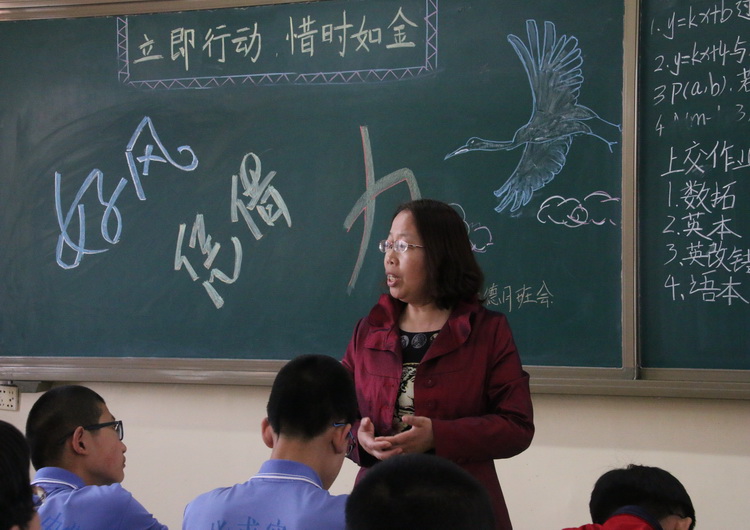 立即行动 惜时如金
好风凭借力
德月班会
1. y=kx+b
2. y=kx+4与
3 P(a,b).若
上交作业
1. 数拓
2. 英本
3. 英改错
4. 语本